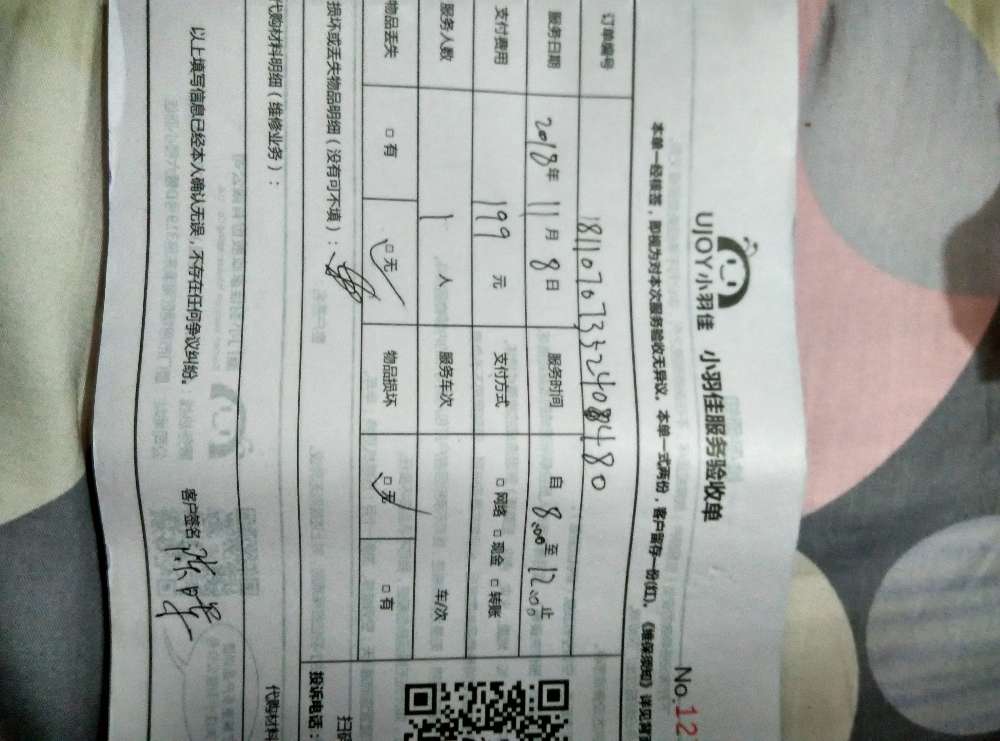 UJOY小羽佳 小羽佳服务验收单
No.12
本单一经核签，即视为对本次服务验收无异议。本单一式两份，客户留存一份(红)。《维保须知》详见背
订单编号
服务日期 2018年 11月 8日 服务时间 自 8:00 至 12:00 止
支付费用 199 元 支付方式 □网络 □现金 □转账
服务人数 1 人 服务车次 车/次
物品丢失 □有 □无 物品损坏 □无 □有
损坏或丢失物品明细（没有可不填）：
投诉电话：
扫码
代购材料明细（维修业务）：
代购材料
以上填写信息已经本人确认无误，不存在任何争议纠纷。 客户签名